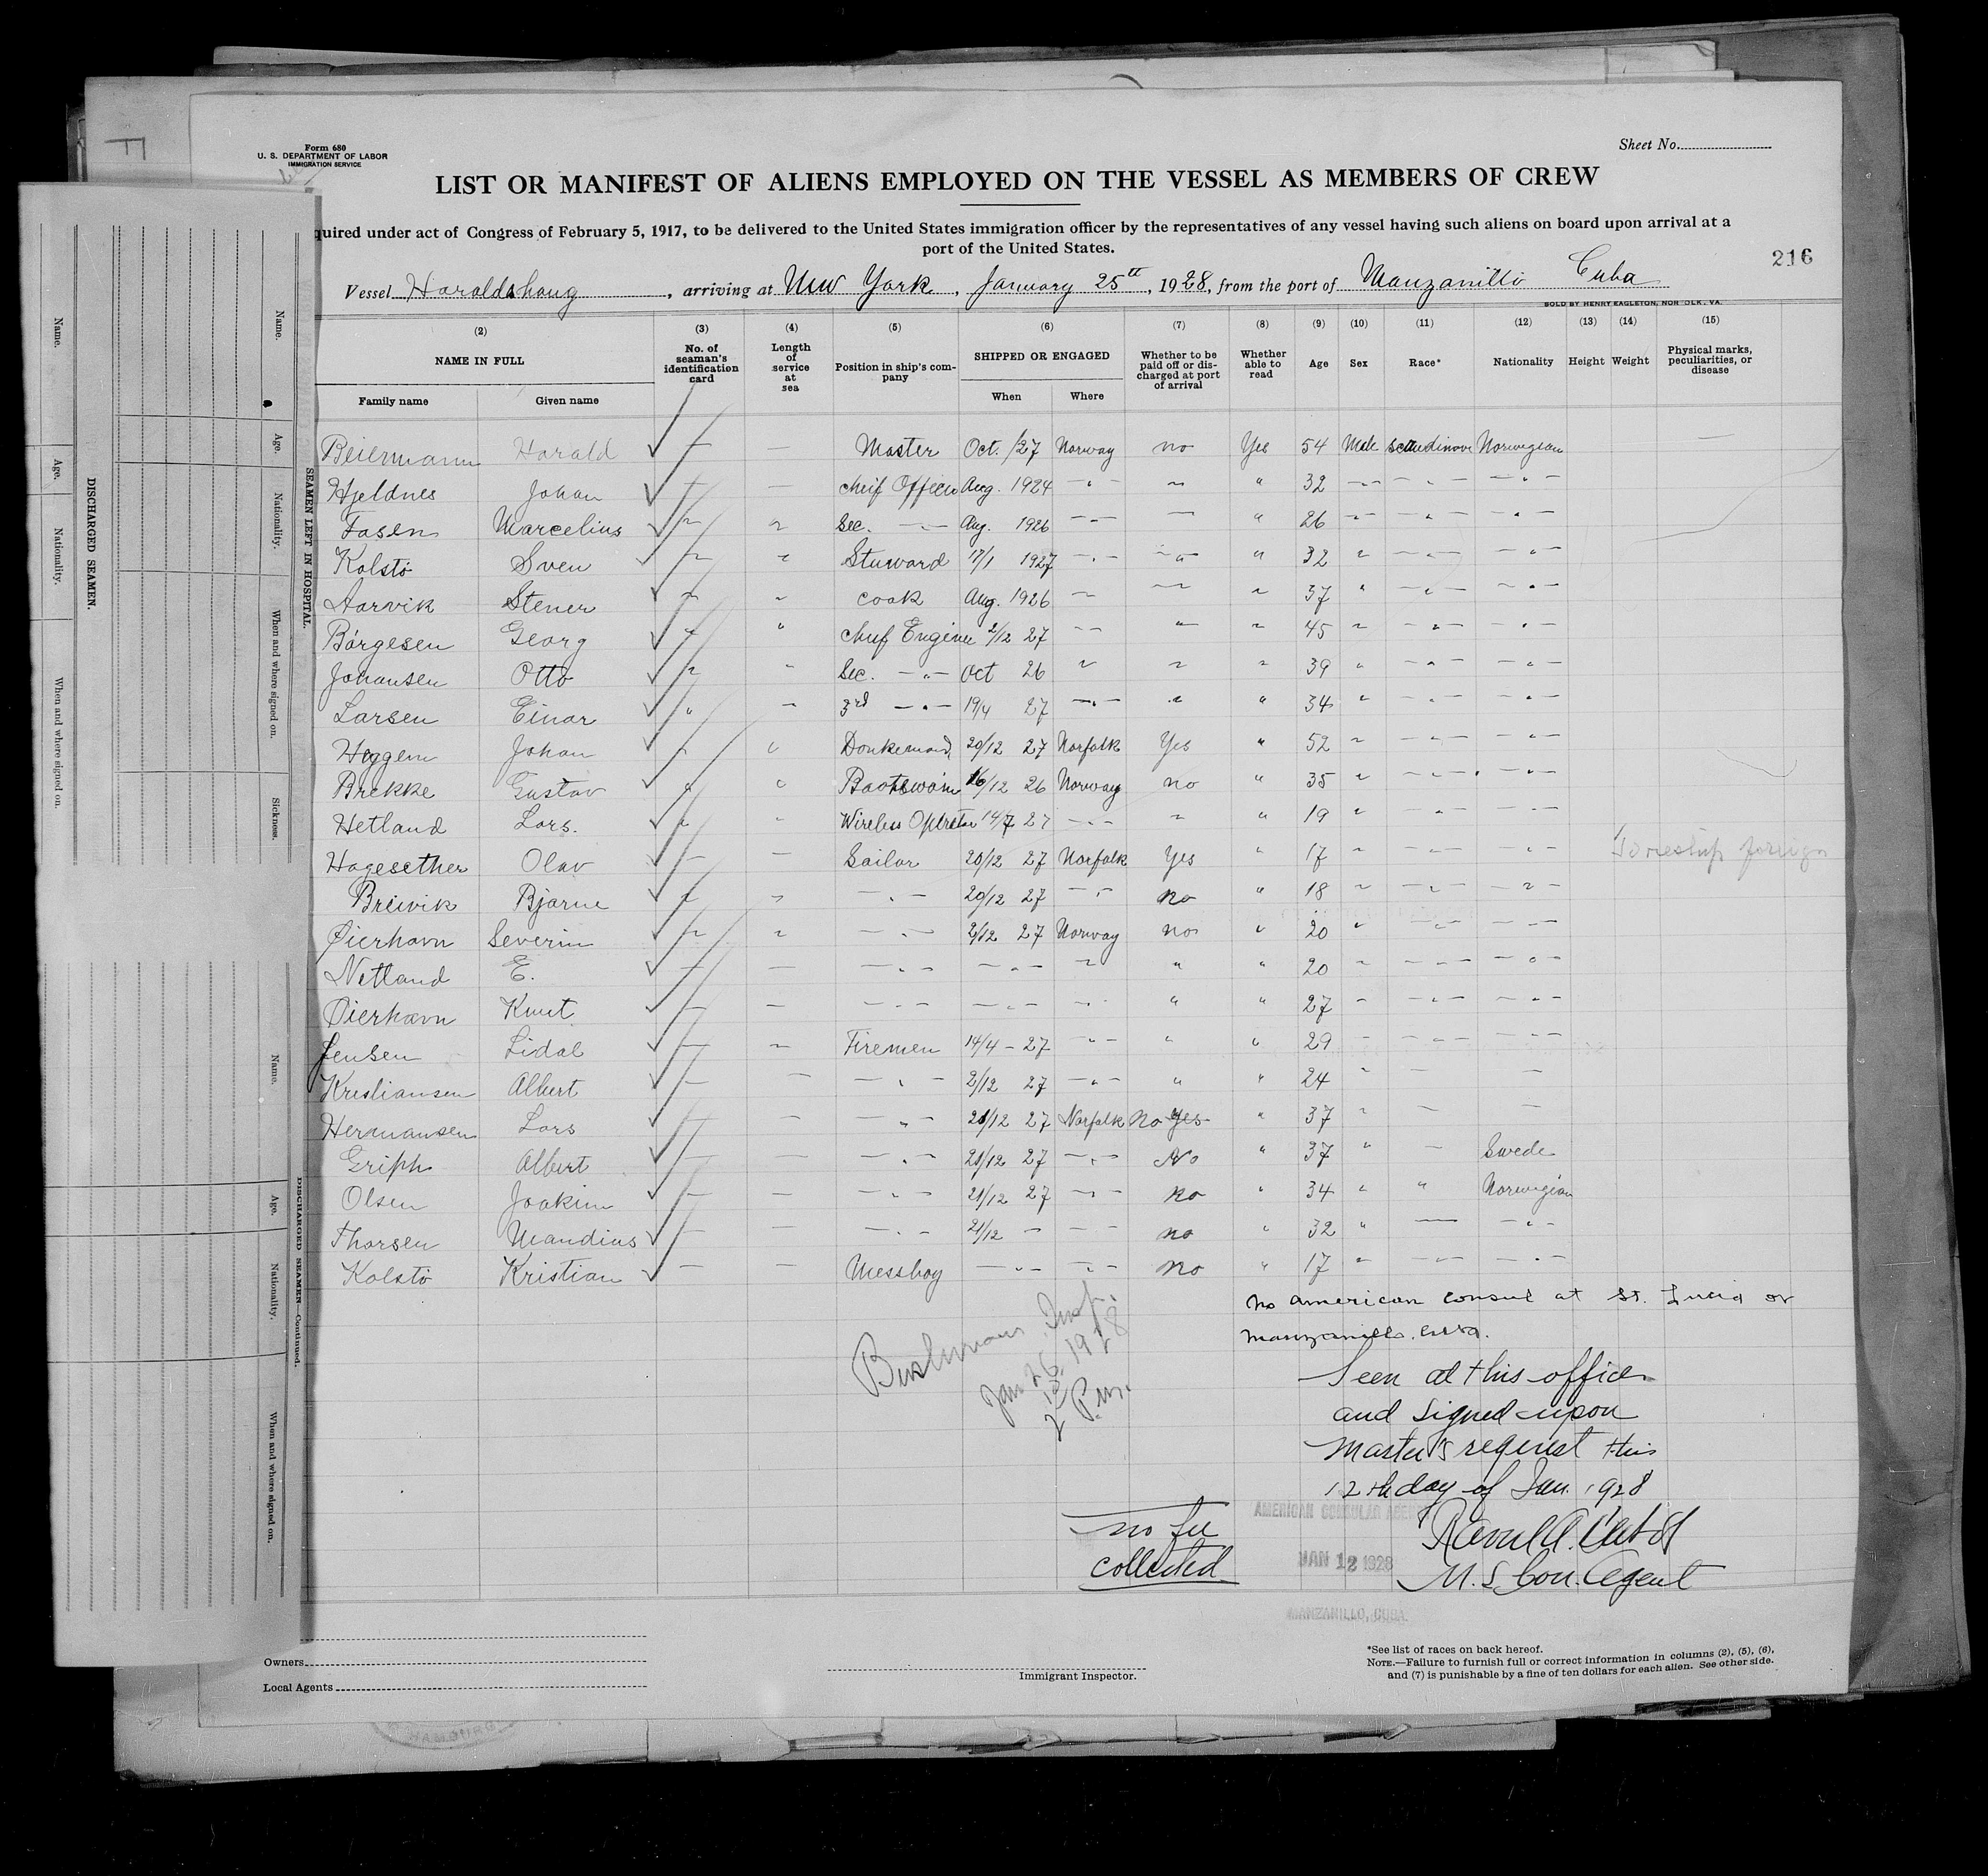 Form 680
U. S. DEPARTMENT OF LABOR
IMMIGRATION SERVICE
Sheet No.
LIST OR MANIFEST OF ALIENS EMPLOYED ON THE VESSEL AS MEMBERS OF CREW
quired under act of Congress of February 5, 1917, to be delivered to the United States immigration officer by the representatives of any vessel having such aliens on board upon arrival at a
port of the United States.
216
Vessel Haroldshaug, arriving at New York, January 25th, 1928, from the port of Manzanillo Cuba
SOLD BY HENRY EAGLETON, NORFOLK, VA.
(2) (3) (4) (5) (6) (7) (8) (9) (10) (11) (12) (13) (14) (15)
NAME IN FULL No. of seaman's identification card Length of service at sea Position in ship's company SHIPPED OR ENGAGED Whether to be paid off or discharged at port of arrival Whether able to read Age Sex Race* Nationality Height Weight Physical marks, peculiarities, or disease
Family name Given name When Where
Beiermann Harald — — Master Oct. /27 Norway no Yes 54 Male Scandinove Norwegian —
Hjeldnes Johan — — cheif Officer Aug. 1924 -"- " " 32 -"- -"- -"-
Fosen Marcelius " " Sec. -"- Aug. 1926 -"- " " 26 -"- -"- -"-
Kolstö Sven " " Stuward 17/1 1927 -"- -"- " 32 " -"- -"-
Aarvik Stener " " cook Aug. 1926 " " " 37 " -"- -"-
Börgesen Georg " " cheif Engineer 2/12 27 -"- " " 45 " -"- -"-
Johansen Otto " " Sec. -"- Oct 26 " " " 39 " -"- -"-
Larsen Einar " " 3rd -"- 19/4 27 -"- " " 34 " -"- -"-
Heggem Johan " " Donkeman 20/12 27 Norfolk Yes " 52 " -"- -"-
Brekke Gustav " " Baatswain 16/12 26 Norway no " 35 " -"- -"-
Hetland Lars. " " Wireless Opretor 14/7 27 -"- " " 19 " -"- -"-
Hagesether Olav — — Sailor 20/12 27 Norfolk Yes " 17 " -"- -"- foreign
Breivik Bjarne " " -"- 20/12 27 -"- no " 18 " -"- -"-
Øierhavn Severin " " -"- 2/12 27 Norway no " 20 " -"- -"-
Netland E. — — -"- -"- " " " 20 " -"- -"-
Øierhavn Knut — — -"- -"- -"- " " 27 " -"- -"-
Jensen Lidal — " Firemen 14/4 - 27 -"- " " 29 " -"- -"-
Kristiansen Albert — — -"- 2/12 27 -"- " " 24 " — —
Hermansen Lars — — -"- 20/12 27 Norfolk No Yes " 37 " — —
Griph Albert — — -"- 21/12 27 -"- No " 37 " — Swede
Olsen Joakim — — -"- 21/12 27 -"- no " 34 " " Norwegian
Thorsen Mandius — — -"- 21/12 - -"- no " 32 " — -"-
Kolstö Kristian — — Messboy -"- -"- no " 17 " -"- -"-
no american consul at St. Lucia or
manzanillo, cuba.
Bushmann Insp.
Jan 26, 1928
2 P.m.
Seen at this office
and signed upon
Master's request this
12th day of Jan. 1928
AMERICAN CONSULAR AGENCY
JAN 12 1928
MANZANILLO, CUBA.
no fee
collected
Con. Agent
Owners
Local Agents
Immigrant Inspector.
*See list of races on back hereof.
NOTE.—Failure to furnish full or correct information in columns (2), (5), (6),
and (7) is punishable by a fine of ten dollars for each alien. See other side.
HAMBURG
DISCHARGED SEAMEN.
Name.
Age.
Nationality.
When and where signed on.
SEAMEN LEFT IN HOSPITAL.
Name.
Age.
Nationality.
When and where signed on.
Sickness.
DISCHARGED SEAMEN—Continued.
Name.
Age.
Nationality.
When and where signed on.